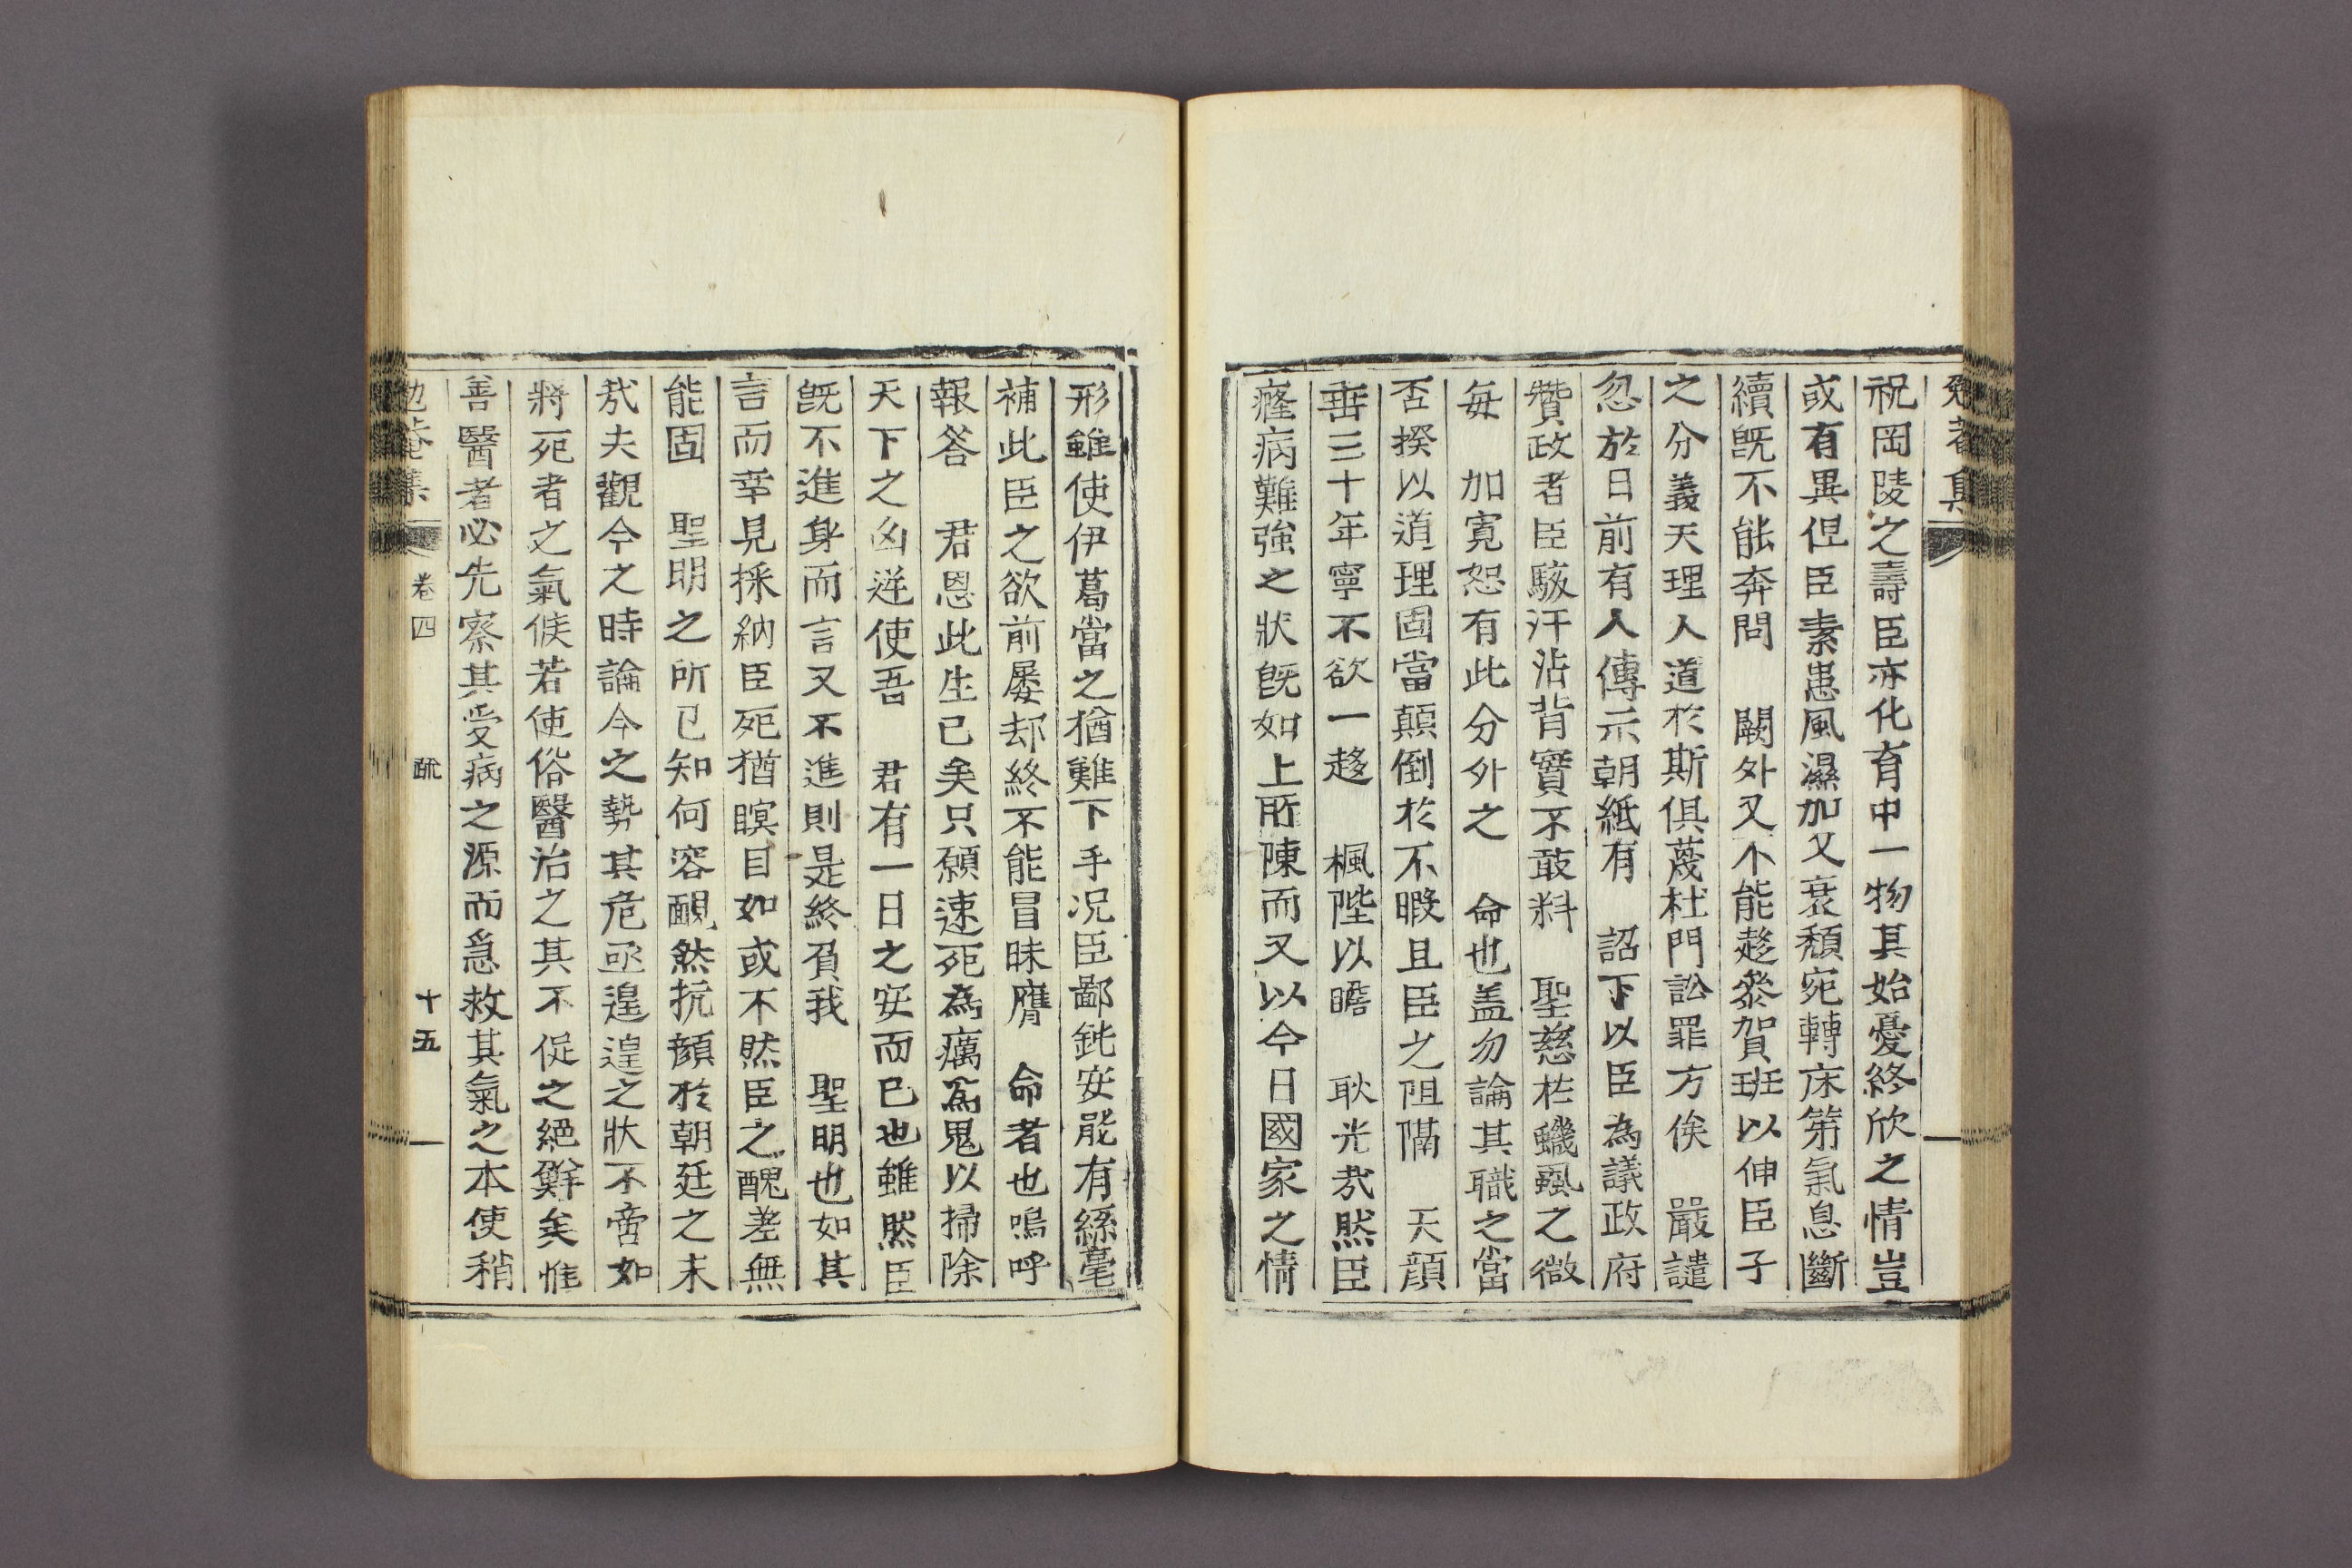 祝岡陵之壽臣亦化育中一物其始憂終欣之情豈
或有異但臣素患風濕加又衰頹宛轉床第氣息斷
續旣不能奔問　闕外又不能趍叅賀班以伸臣子
之分義天理人道於斯俱蔑杜門訟罪方俟　嚴譴
忽於日前有人傳示朝紙有　詔下以臣為議政府
贊政者臣駭汗沾背實不敢料　聖慈在蟣虱之微
每　加寬恕有此分外之　命也盖勿論其職之當
否揆以道理固當顛倒於不暇且臣之阻隔　天顔
垂三十年寧不欲一趍　楓陛以瞻　耿光㢤然臣
癃病難強之狀旣如上所陳而又以今日國家之情
形雖使伊葛當之猶難下手况臣鄙鈍安能有絲毫
補此臣之欲前屢却終不能冒昧膺　命者也嗚呼
報答　君恩此生已矣只願速死為癘為鬼以掃除
天下之凶逆使吾　君有一日之安而已也雖然臣
旣不進身而言又不進則是終負我　聖明也如其
言而幸見採納臣死猶瞑目如或不然臣之醜差無
能固　聖明之所已知何容靦然抗顔於朝廷之末
㢤夫觀今之時論今之勢其危亟遑遑之狀不啻如
將死者之氣候若使俗醫治之其不促之絕鮮矣惟
善醫者必先察其受病之源而急救其氣之本使稍
勉菴集　卷四　疏　十五